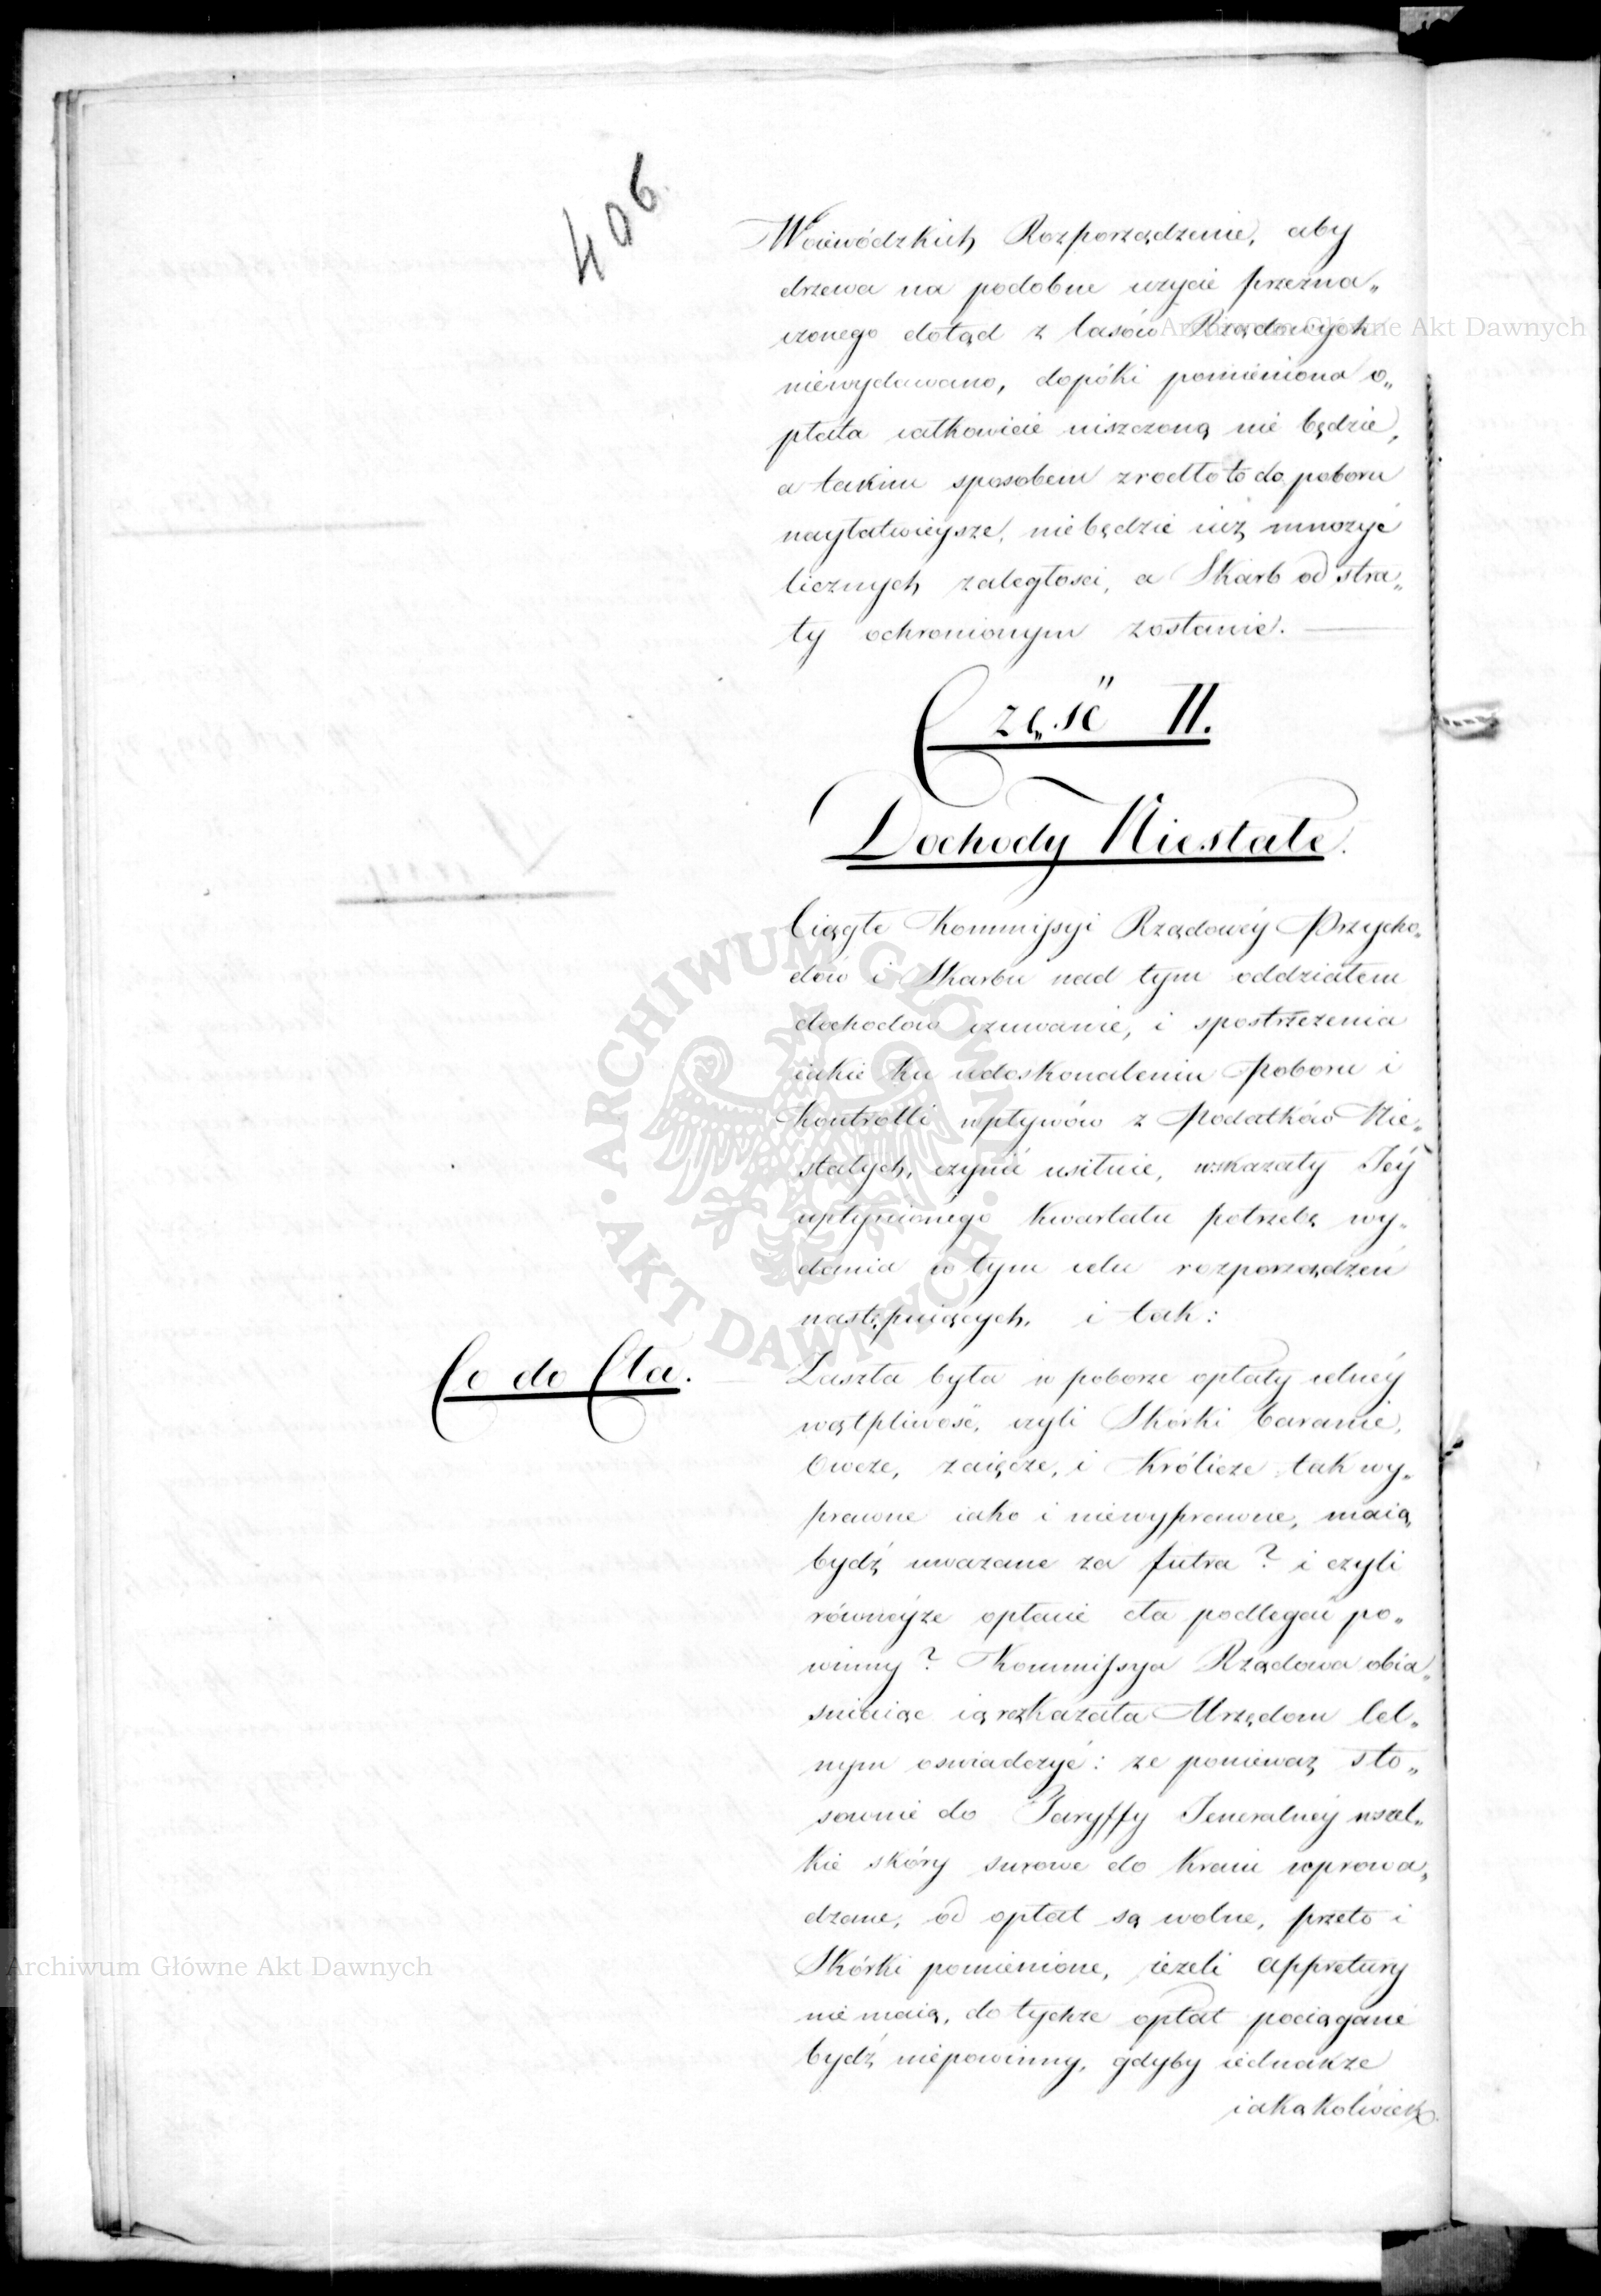 406.
Woiewódzkich Rozporządzenie, aby
drzewa na podobne użycie przezna„
czonego dotąd z lasów Rządowych
niewydawano, dopóki pomieniona o„
płata całkowicie uiszczoną nie będzie,
a takim sposobem zrodło to do poboru
nayłatwieysze, niebędzie iuż mnożyć
licznych zaległosci, a Skarb od stra„
ty ochronionym zostanie.
Część II.
Dochody Niestałe.
Ciągłe Kommissyi Rządowéy Przycho„
dów i Skarbu nad tym oddziałem
dochodow czuwanie, i spostrzeżenia
iakie ku udoskonaleniu Poboru i
Kontrolli wpływów z Podatków Nie„
stałych, czynić usiłuie, wskazały Jéy
upłynionego Kwartału potrzebę wy„
dania w tym celu rozporządzeń
następuiących, i tak:
Co do Cła.
Zaszła była w poborze opłaty celnéy
wątpliwość, czyli Skórki baranie,
Owcze, zaięcze, i Królicze tak wy„
prawne iako i niewyprawne, maią
bydź uważane za futra? i czyli
równéyże opłacie cła podlegać po„
winny? Kommissya Rządowa obia„
sniaiąc ią rozkazała Urzędom Cel„
nym oswiadczyć: że ponieważ sto„
sownie do Taryffy Jeneralnéy wszel„
kie skóry surowe do Kraiu wprowa„
dzane, od opłat są wolne, przeto i
Skórki pomienione, ieżeli appretury
nie maią, do tychże opłat pociągane
bydź niepowinny, gdyby iednakże
iakąkolwiek
Archiwum Główne Akt Dawnych
Archiwum Główne Akt Dawnych
ARCHIWUM GŁÓWNE · AKT DAWNYCH ·